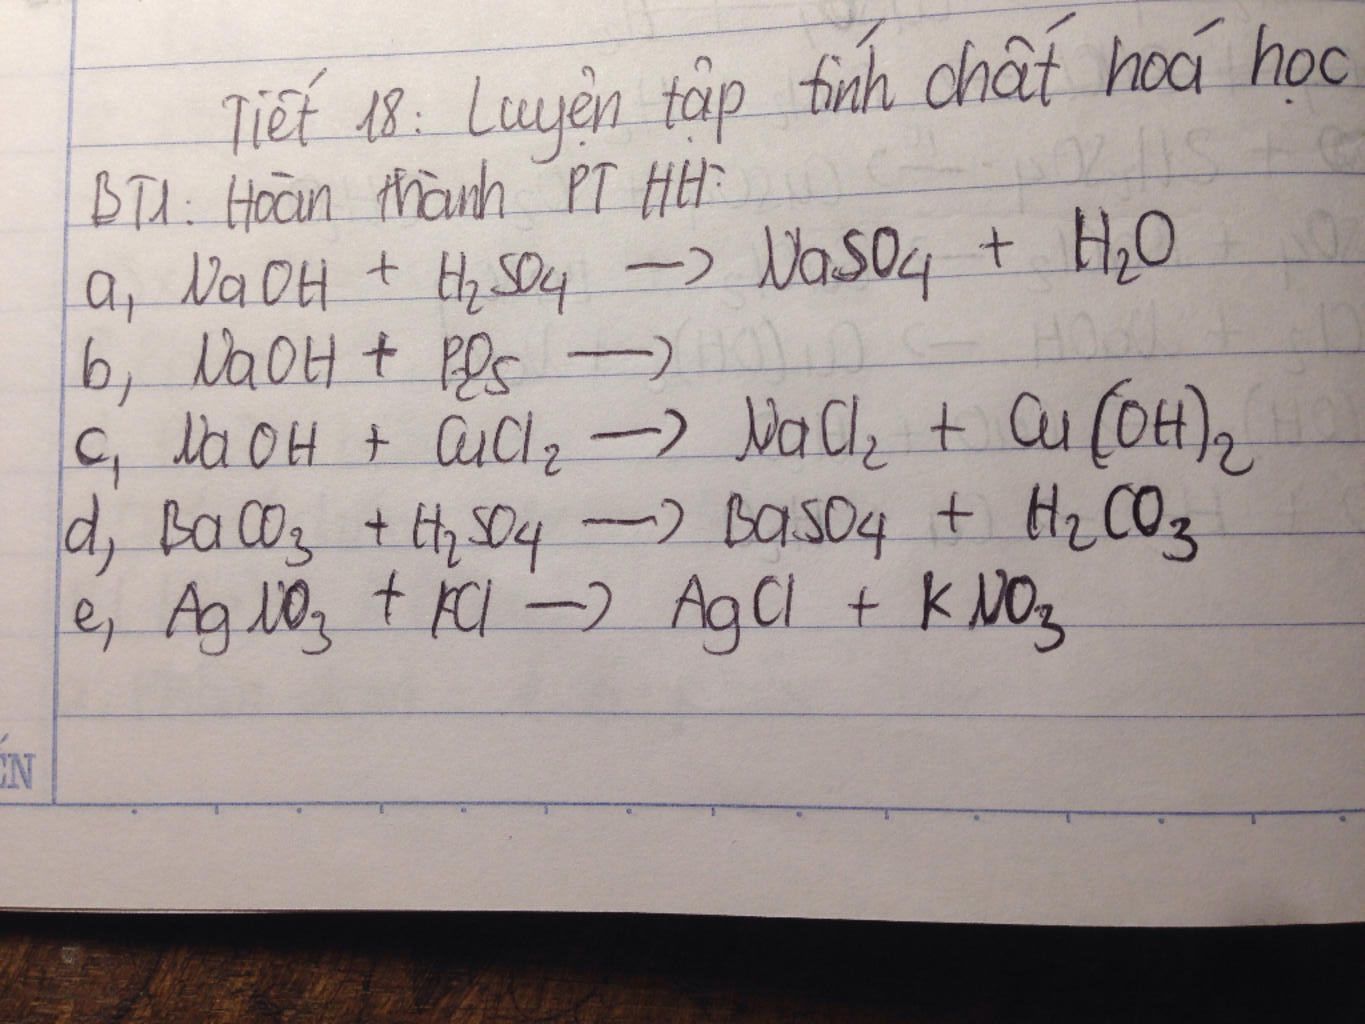 Tiết 18: Luyện tập tính chất hoá học
BT1: Hoàn thành PT HH:
a, NaOH + H₂SO₄ → NaSO₄ + H₂O
b, NaOH + P₂O₅ →
c, NaOH + CuCl₂ → NaCl₂ + Cu(OH)₂
d, BaCO₃ + H₂SO₄ → BaSO₄ + H₂CO₃
e, AgNO₃ + KCl → AgCl + KNO₃